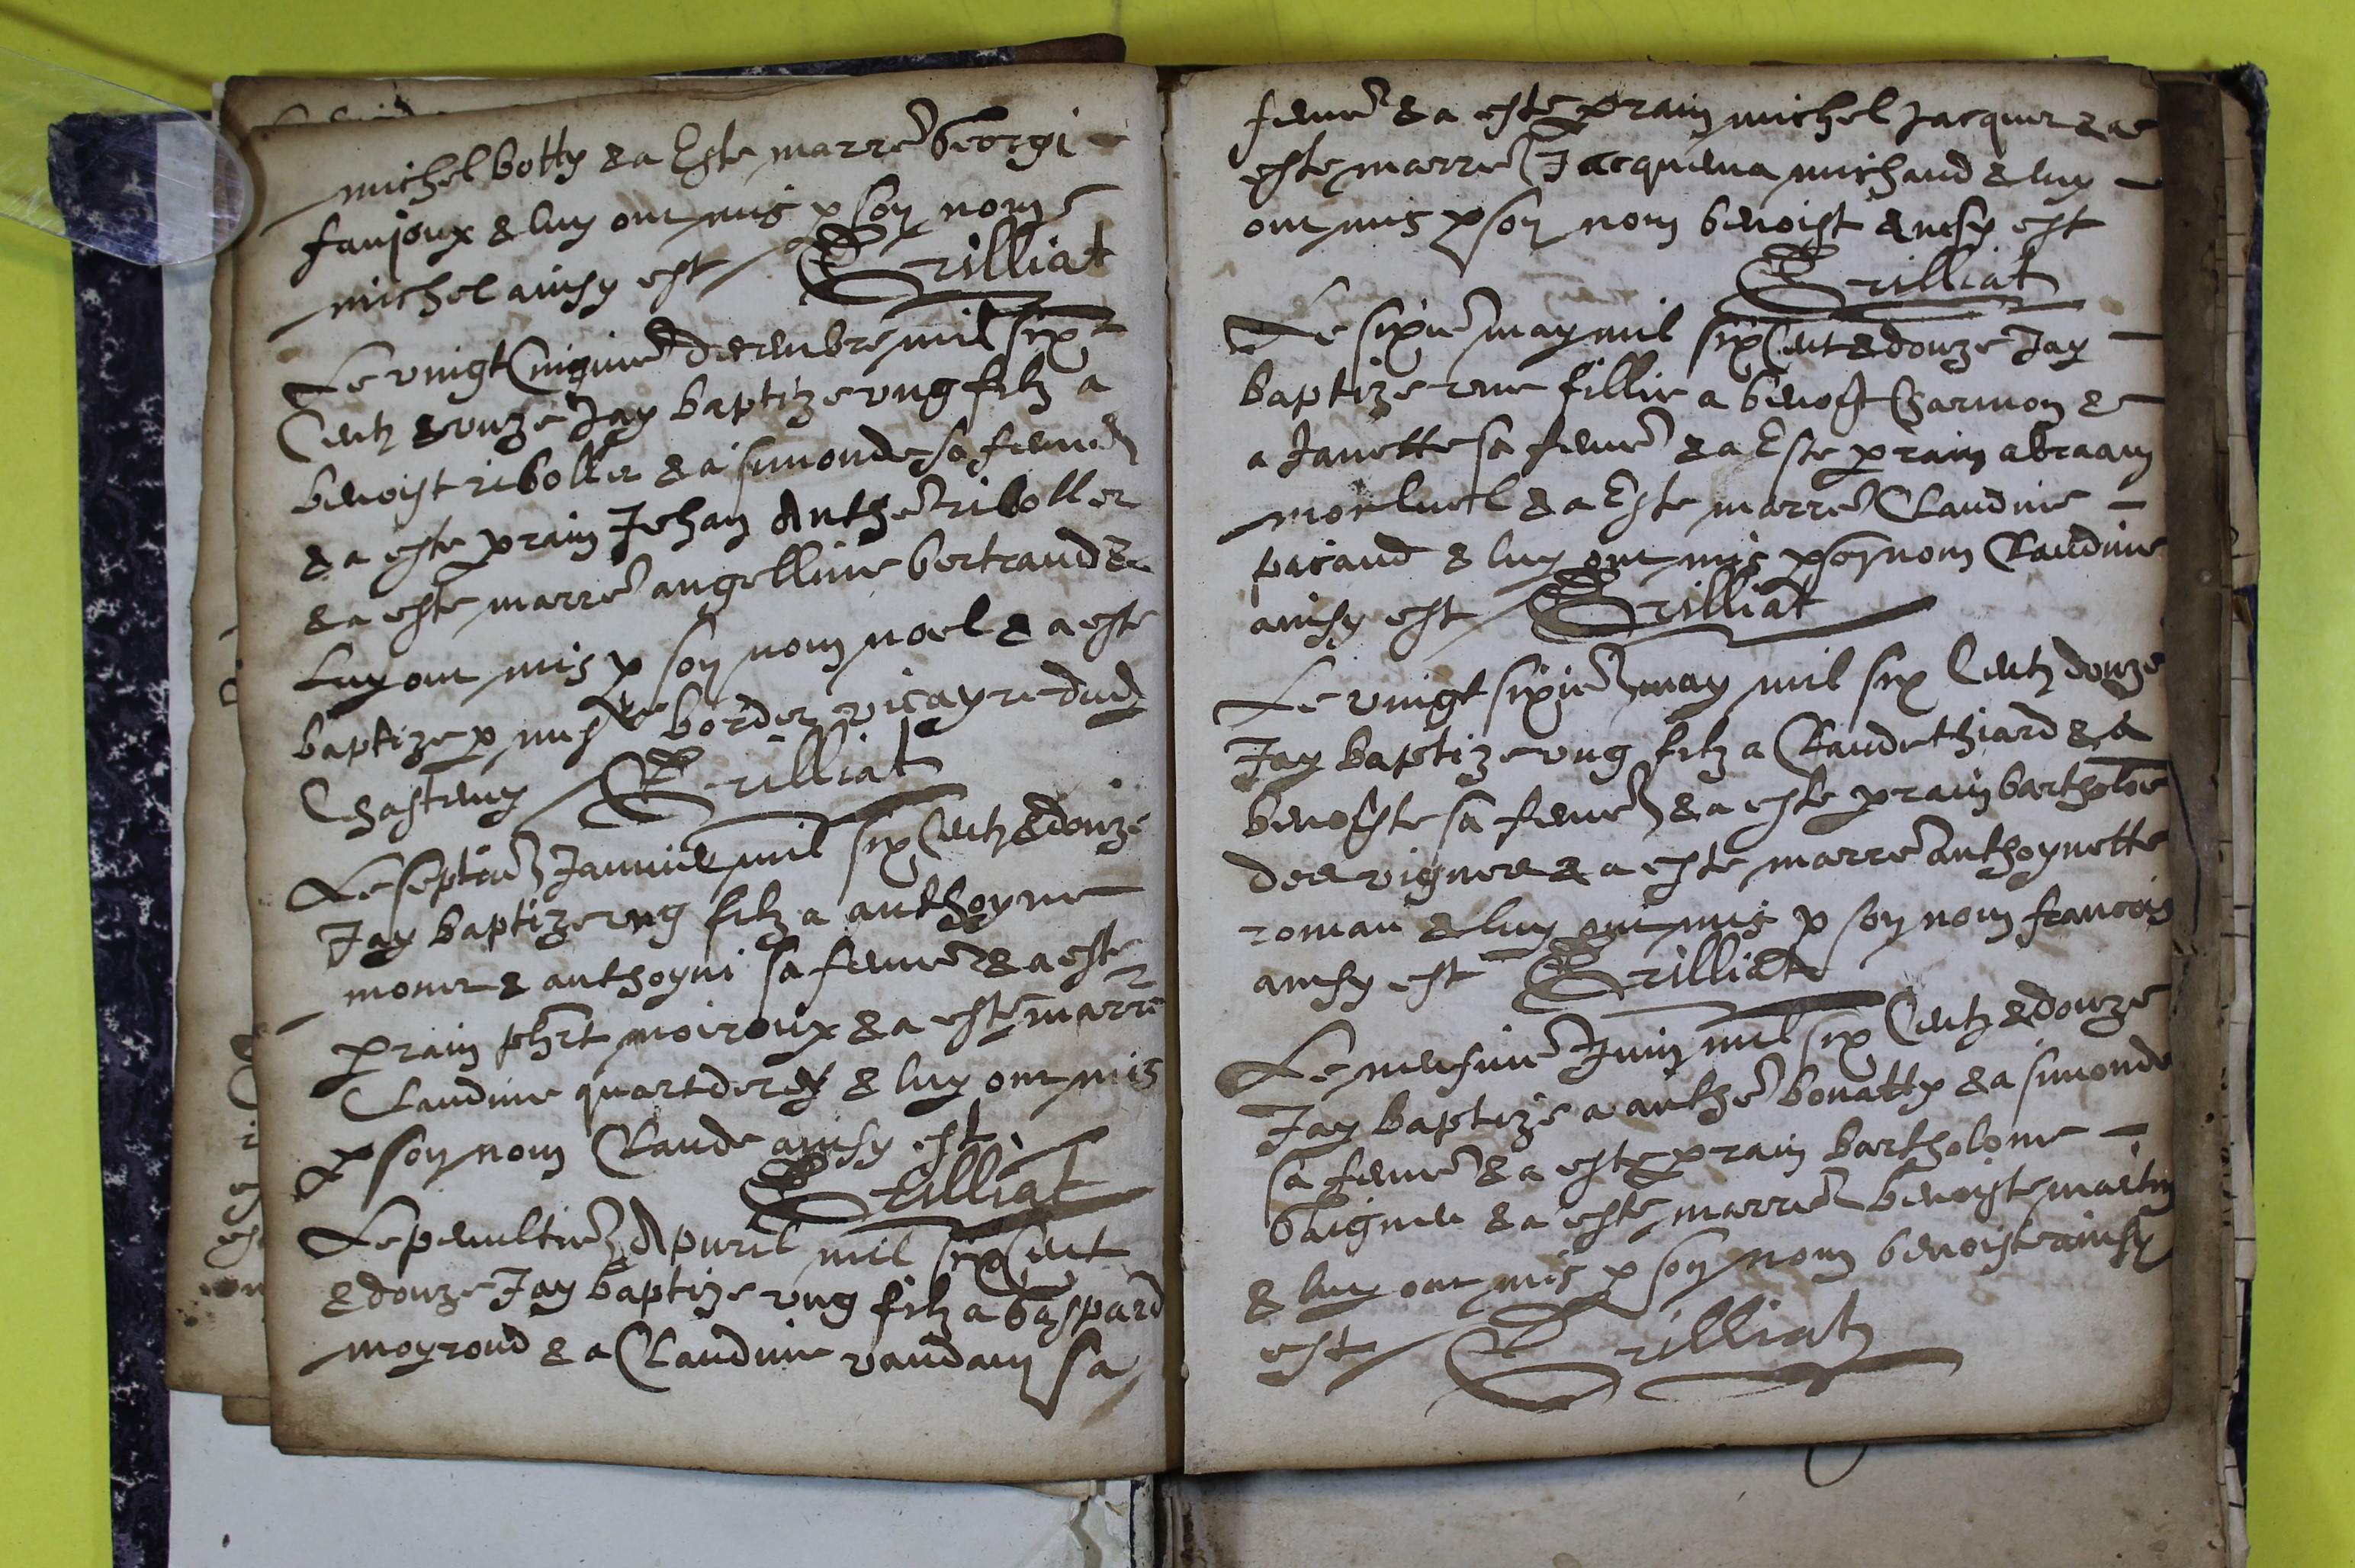 michel botty & a Este marre Georgi
faujoux & luy ont mis p son nom
michel ainsy est Trilliat
Le vingt Cinqine decembre mil six
Centz & unze Jay baptize ung filz a
benoist riboller & a simonde sa feme
& a este prain Jehan Anthe riboller
& a este marre angelline bertrand &
Luy ont mis p son nom noel & a este
baptize p mess border vicayre dud
Chasteny Trilliat
Le septie Janvier mil six Centz & douze
Jay baptize ung filz a anthoyne
monet & anthoyni sa feme & a este
prain moiroux & a este marre
Claudine quart & luy ont mis
p son nom Claude ainsy est
Trilliat
Le penultie Apvril mil six Cent
& douze Jay baptize ung filz a Gaspard
moyrond & a Claudine vandam sa
feme & a este prain michel Jacquet & a
este marre Jacquema michaud & luy
ont mis p son nom benoist ainsy est
Trilliat
Le sixie may mil six Cent & douze Jay
baptize une fillie a benoist Charmon &
a Janette sa feme & a Este prain abraam
morluel & a Este marre Claudine
pacaud & luy ont mis p son nom Claudine
ainsy est Trilliat
Le vingt sixie may mil six Centz douze
Jay baptize ung filz a Claude thiard & a
benoiste sa feme & a este prain bartholoe
des vignes & a este marre anthoynette
roman & luy ont mis p son nom francois
ainsy est Trilliat
Le neufvie Juin mil six Centz & douze
Jay baptize a anthe bonatty & a simonde
sa feme & a este prain bartholome
& a este marre benoiste martin
& luy ont mis p son nom benoiste ainsy
est Trilliat